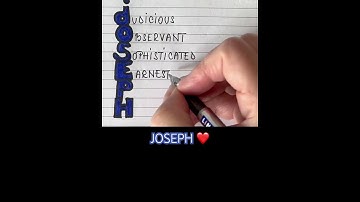 JUDICIOUS
OBSERVANT
SOPHISTICATED
EARNEST
P
H
JOSEPH ❤️